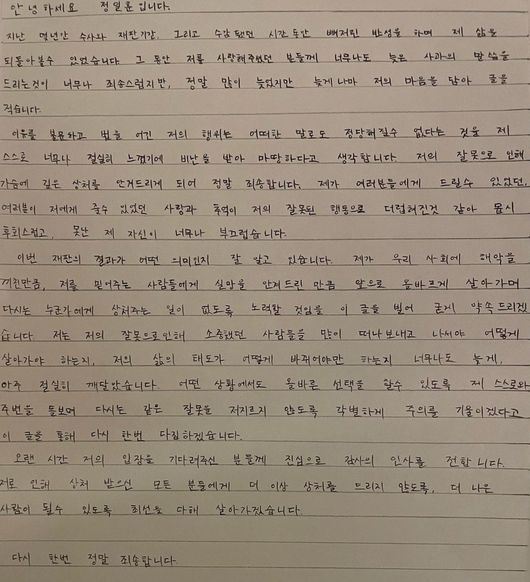 안녕하세요 정일훈 입니다.
지난 몇년간 수사와 재판기간, 그리고 수감됐던 시간동안 뼈저린 반성을 하며 제 삶을
되돌아볼수 있었습니다. 그 동안 저를 사랑해주셨던 분들께 너무나도 늦은 사과의 말씀을
드리는것이 너무나 죄송스럽지만, 정말 많이 늦었지만 늦게나마 저의 마음을 담아 글을
적습니다.
이유를 불문하고 법을 어긴 저의 행위는 어떠한 말로도 정당해질수 없다는 것을 제
스스로 너무나 절실히 느꼈기에 비난을 받아 마땅하다고 생각합니다. 저의 잘못으로 인해
가슴에 깊은 상처를 안겨드리게 되어 정말 죄송합니다. 제가 여러분들에게 드릴수 있었던,
여러분이 저에게 줄수 있었던 사랑과 추억이 저의 잘못된 행동으로 더럽혀진것 같아 몹시
후회스럽고, 못난 제 자신이 너무나 부끄럽습니다.
이번 재판의 결과가 어떤 의미인지 잘 알고 있습니다. 제가 우리 사회에 해악을
끼친만큼, 저를 믿어주는 사람들에게 실망을 안겨드린 만큼 앞으로 올바르게 살아가며
다시는 누군가에게 상처주는 일이 없도록 노력할 것임을 이 글을 빌어 굳게 약속드리겠
습니다. 저는 저의 잘못으로인해 소중했던 사람들을 많이 떠나보내고 나서야 어떻게
살아가야 하는지, 저의 삶의 태도가 어떻게 바뀌어야만 하는지 너무나도 늦게,
아주 절실히 깨달았습니다. 어떤 상황에서도 올바른 선택을 할수 있도록 제 스스로와
주변을 돌보며 다시는 같은 잘못을 저지르지 않도록 각별하게 주의를 기울이겠다고
이 글을 통해 다시 한번 다짐하겠습니다.
오랜 시간 저의 입장을 기다려주신 분들께 진심으로 감사의 인사를 전합니다.
저로 인해 상처 받으신 모든 분들에게 더 이상 상처를 드리지 않도록, 더 나은
사람이 될수 있도록 최선을 다해 살아가겠습니다.
다시 한번 정말 죄송합니다.